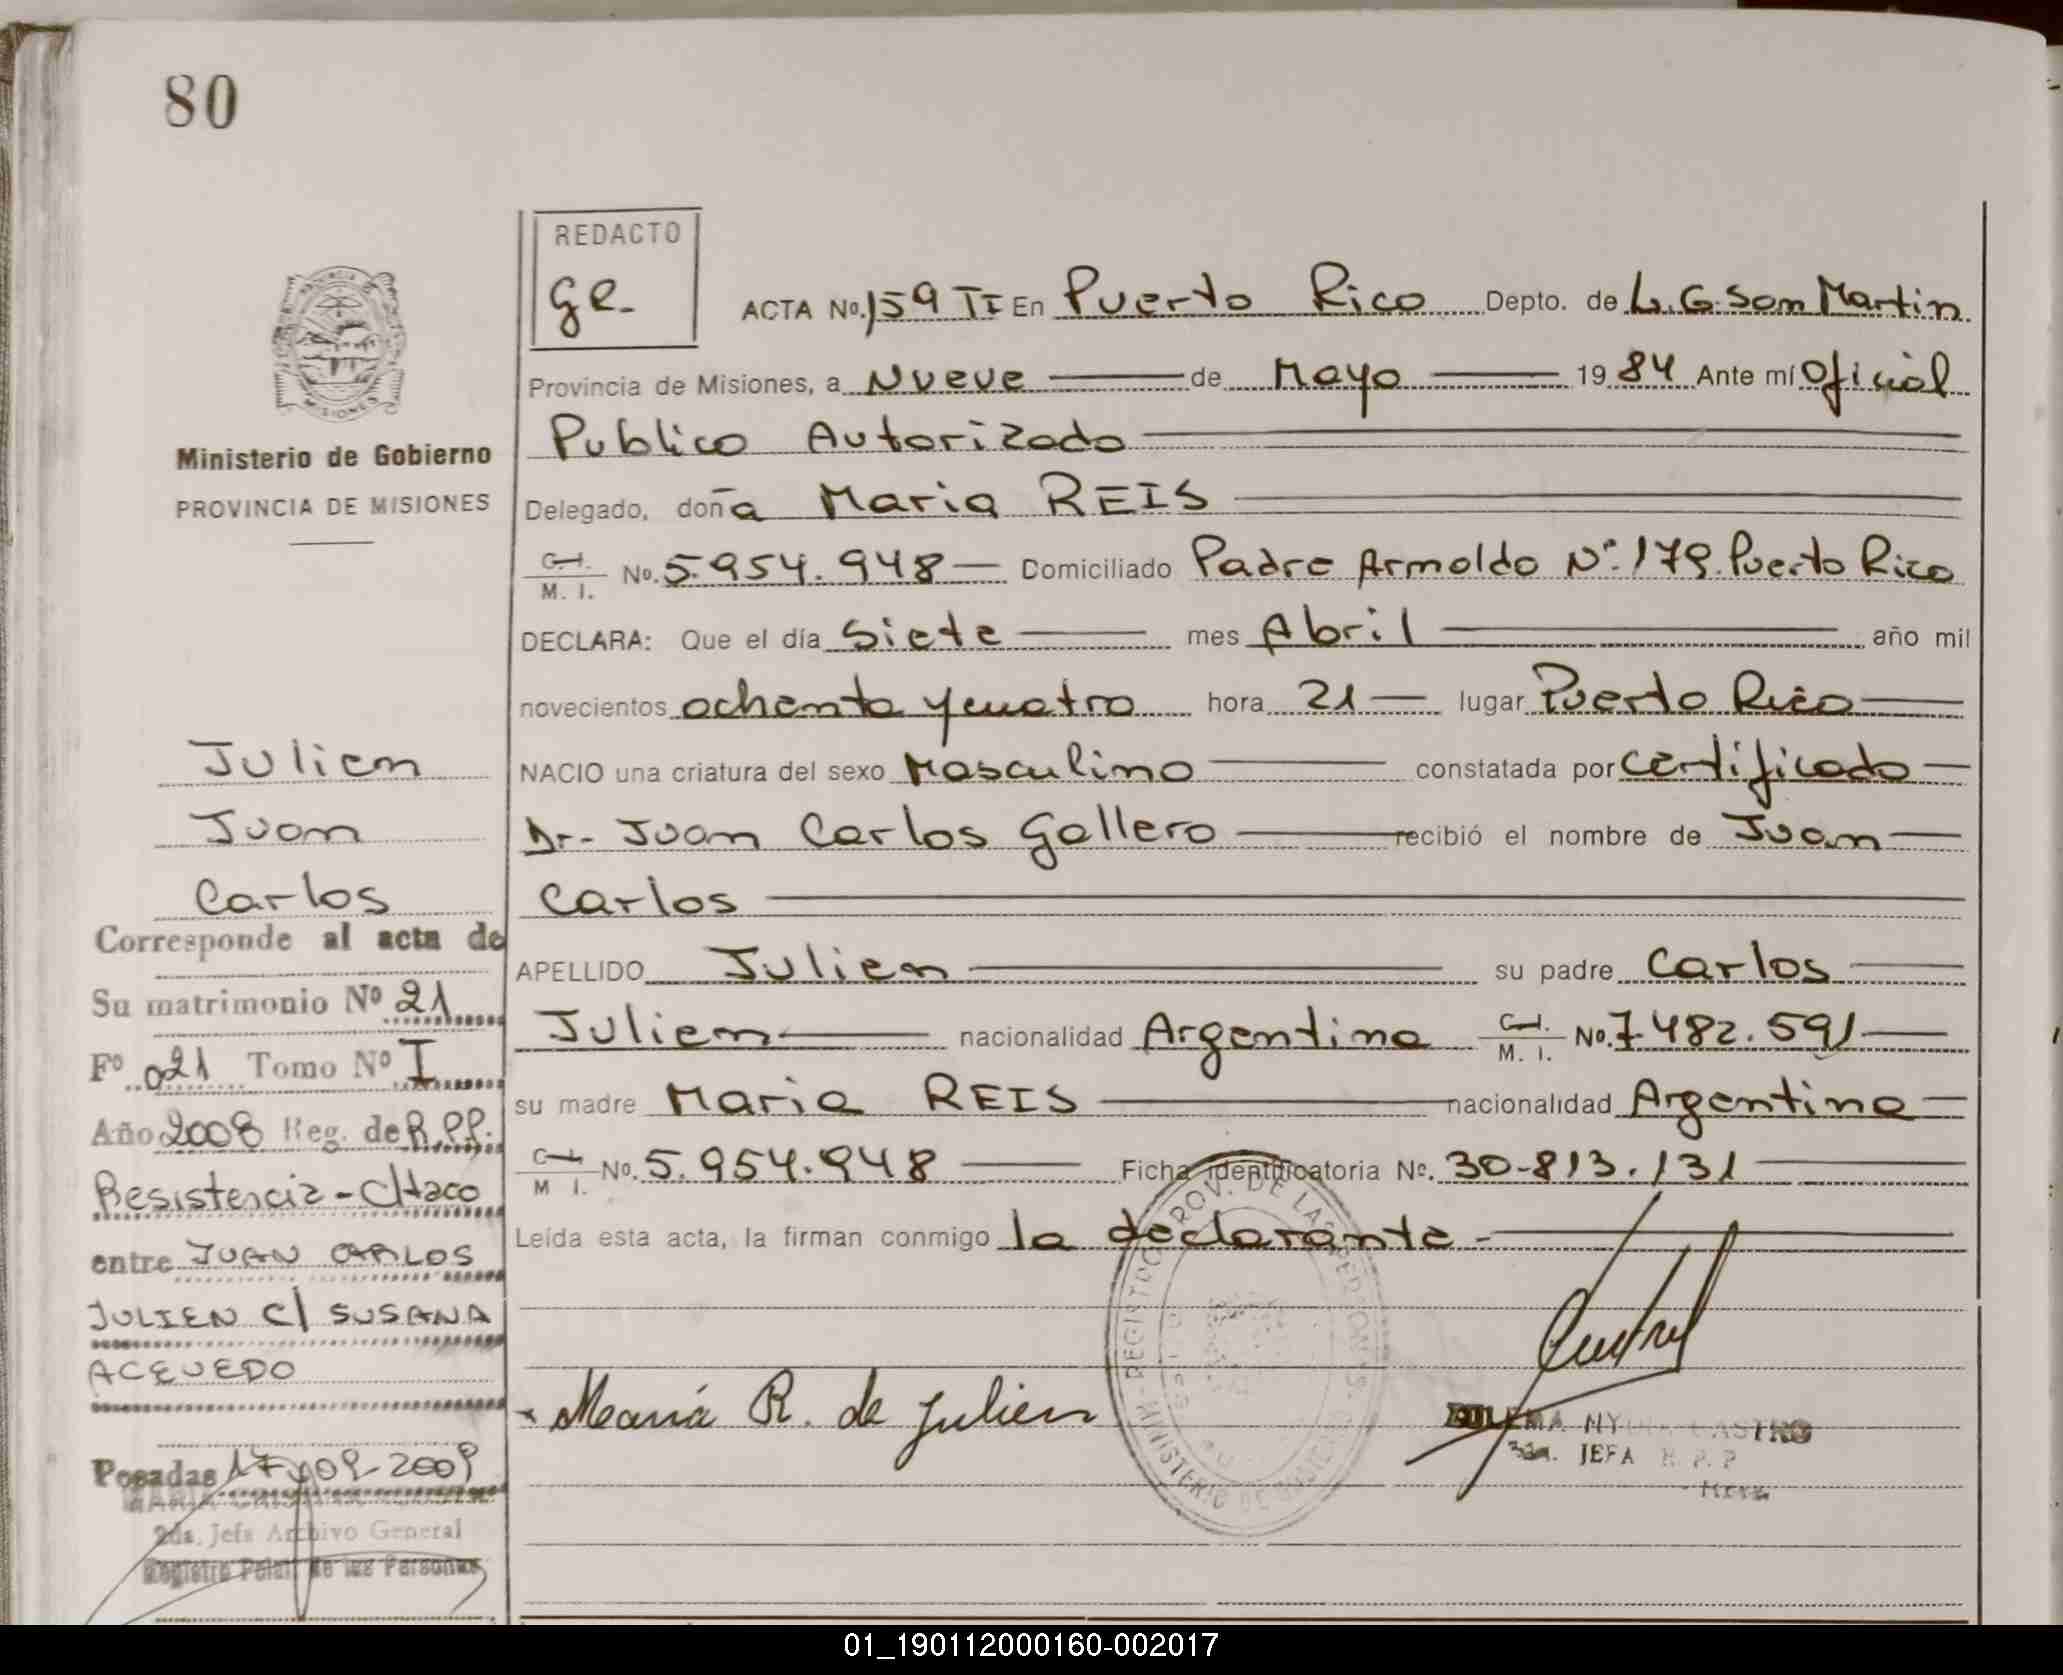 80
REDACTO
ge-
ACTA No. 159 TI En Puerto Rico Depto. de L. G. San Martin.
Provincia de Misiones, a Nueve de Mayo 1984 Ante mí Oficial
Publico Autorizado
Delegado, doña Maria REIS
C.I.
M. I. No. 5.954.948 Domiciliado Padre Arnoldo N°. 179. Puerto Rico
DECLARA: Que el día Siete mes Abril año mil
novecientos ochenta y cuatro hora 21 lugar Puerto Rico
NACIO una criatura del sexo Masculino constatada por certificado
Dr- Juan Carlos Gallero recibió el nombre de Juan
Carlos
APELLIDO Julien su padre Carlos
Julien nacionalidad Argentina C.I. M. I. No. 7.482.591
su madre Maria REIS nacionalidad Argentina
C.I. M I. No. 5.954.948 Ficha identificatoria No. 30-813.131
Leída esta acta, la firman conmigo la declarante -
María R. de Julien
CASTRO
JEFA R. P. P
PROVINCIA
MISIONES
Ministerio de Gobierno
PROVINCIA DE MISIONES
Julien
Juan
Carlos
Corresponde al acta de
Su matrimonio Nº 21
Fº 021 Tomo Nº I
Año 2008 Reg. de R.PP.
Resistencia - CHaco
entre JUAN CARLOS
JULIEN C/ SUSANA
ACEVEDO
Posadas 17-09-2009
2da. Jefa Archivo General
Registro Pcial. de las Personas
REGISTRO PROV. DE LAS PERSONAS
MINISTERIO DE
01_190112000160-002017